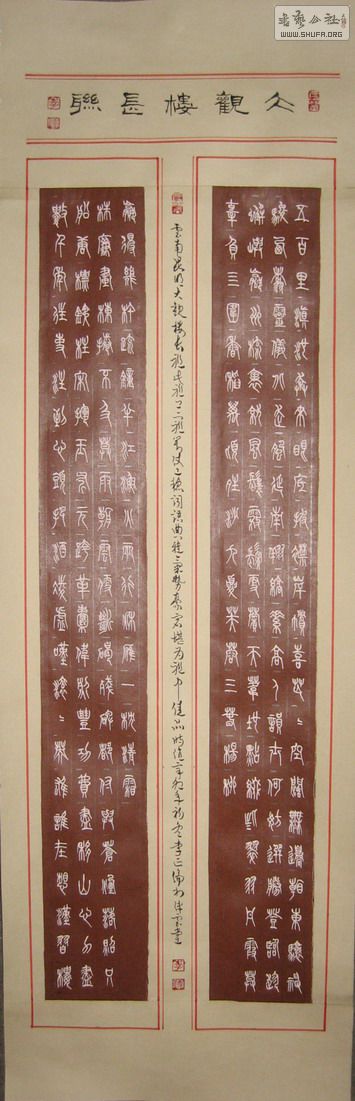 书艺公社
WWW.SHUFA.ORG
大觀樓長聯
五百里滇池奔來眼底披襟岸幘喜茫茫空闊無邊看東驤神
駿西翥靈儀北走蜿蜒南翔縞素高人韻士何妨選勝登臨趁
蟹嶼螺洲梳裹就風鬟霧鬢更蘋天葦地點綴些翠羽丹霞莫
辜負四圍香稻萬頃晴沙九夏芙蓉三春楊柳
雲南昆明大觀樓長聯氣勢豪宕堪為聯中佳品時值
數千年往事注到心頭把酒凌虛嘆滾滾英雄誰在想漢習樓
船唐標鐵柱宋揮玉斧元跨革囊偉烈豐功費盡移山心力盡
珠簾畫棟捲不及暮雨朝雲便斷碣殘碑都付與蒼煙落照只
贏得幾杵疏鐘半江漁火兩行秋雁一枕清霜